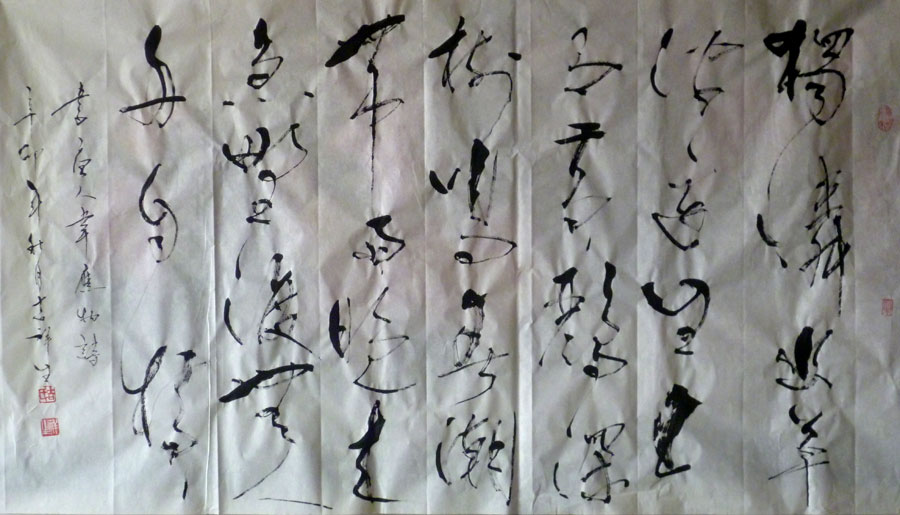 獨憐幽草
澗邊生上
有黃鸝深
樹鳴春潮
帶雨晚來
急野渡無人
舟自橫
唐人韋應物詩
辛卯年秋月